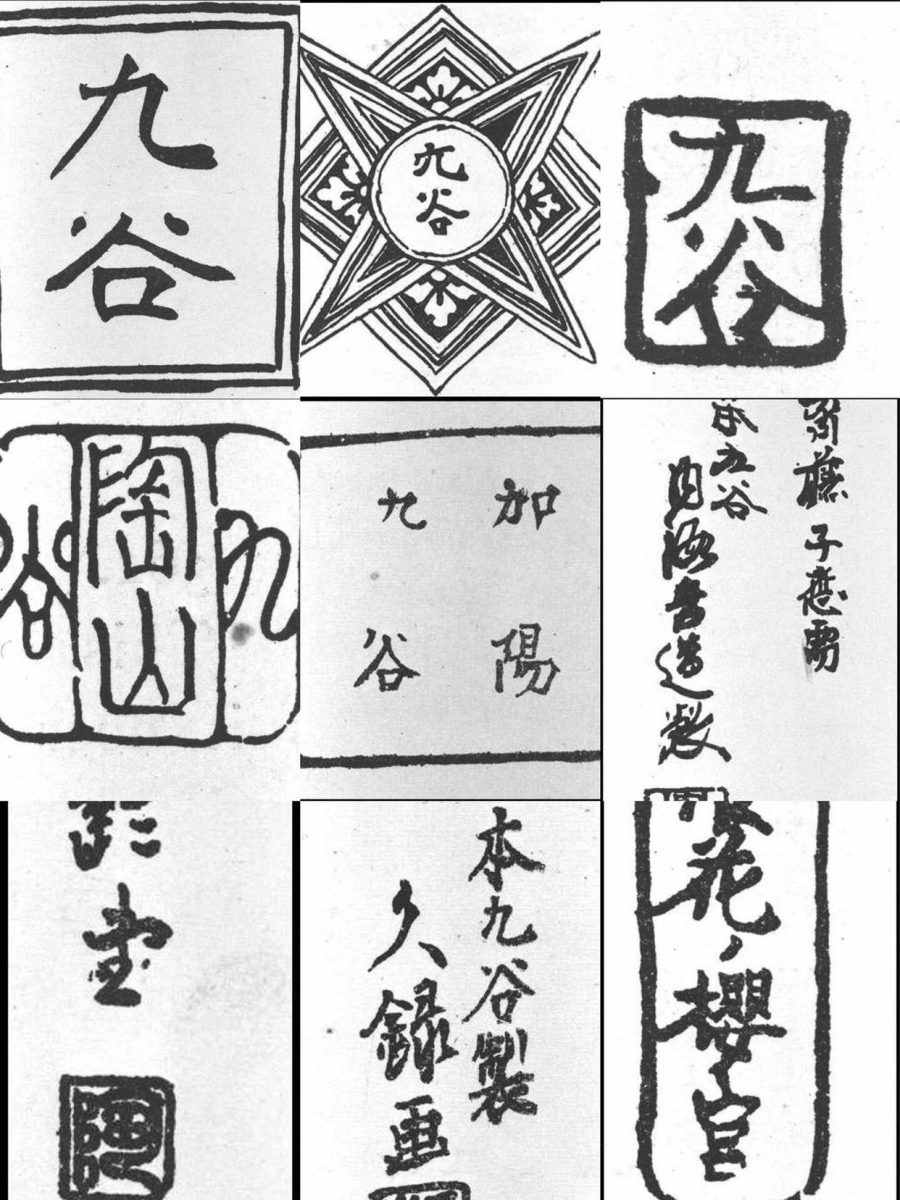 九谷
谷
九谷
九
陶山
谷
加陽
九谷
藤子
九谷
内海吉造製
堂
陶
本九谷製
久録画
花ノ櫻宮